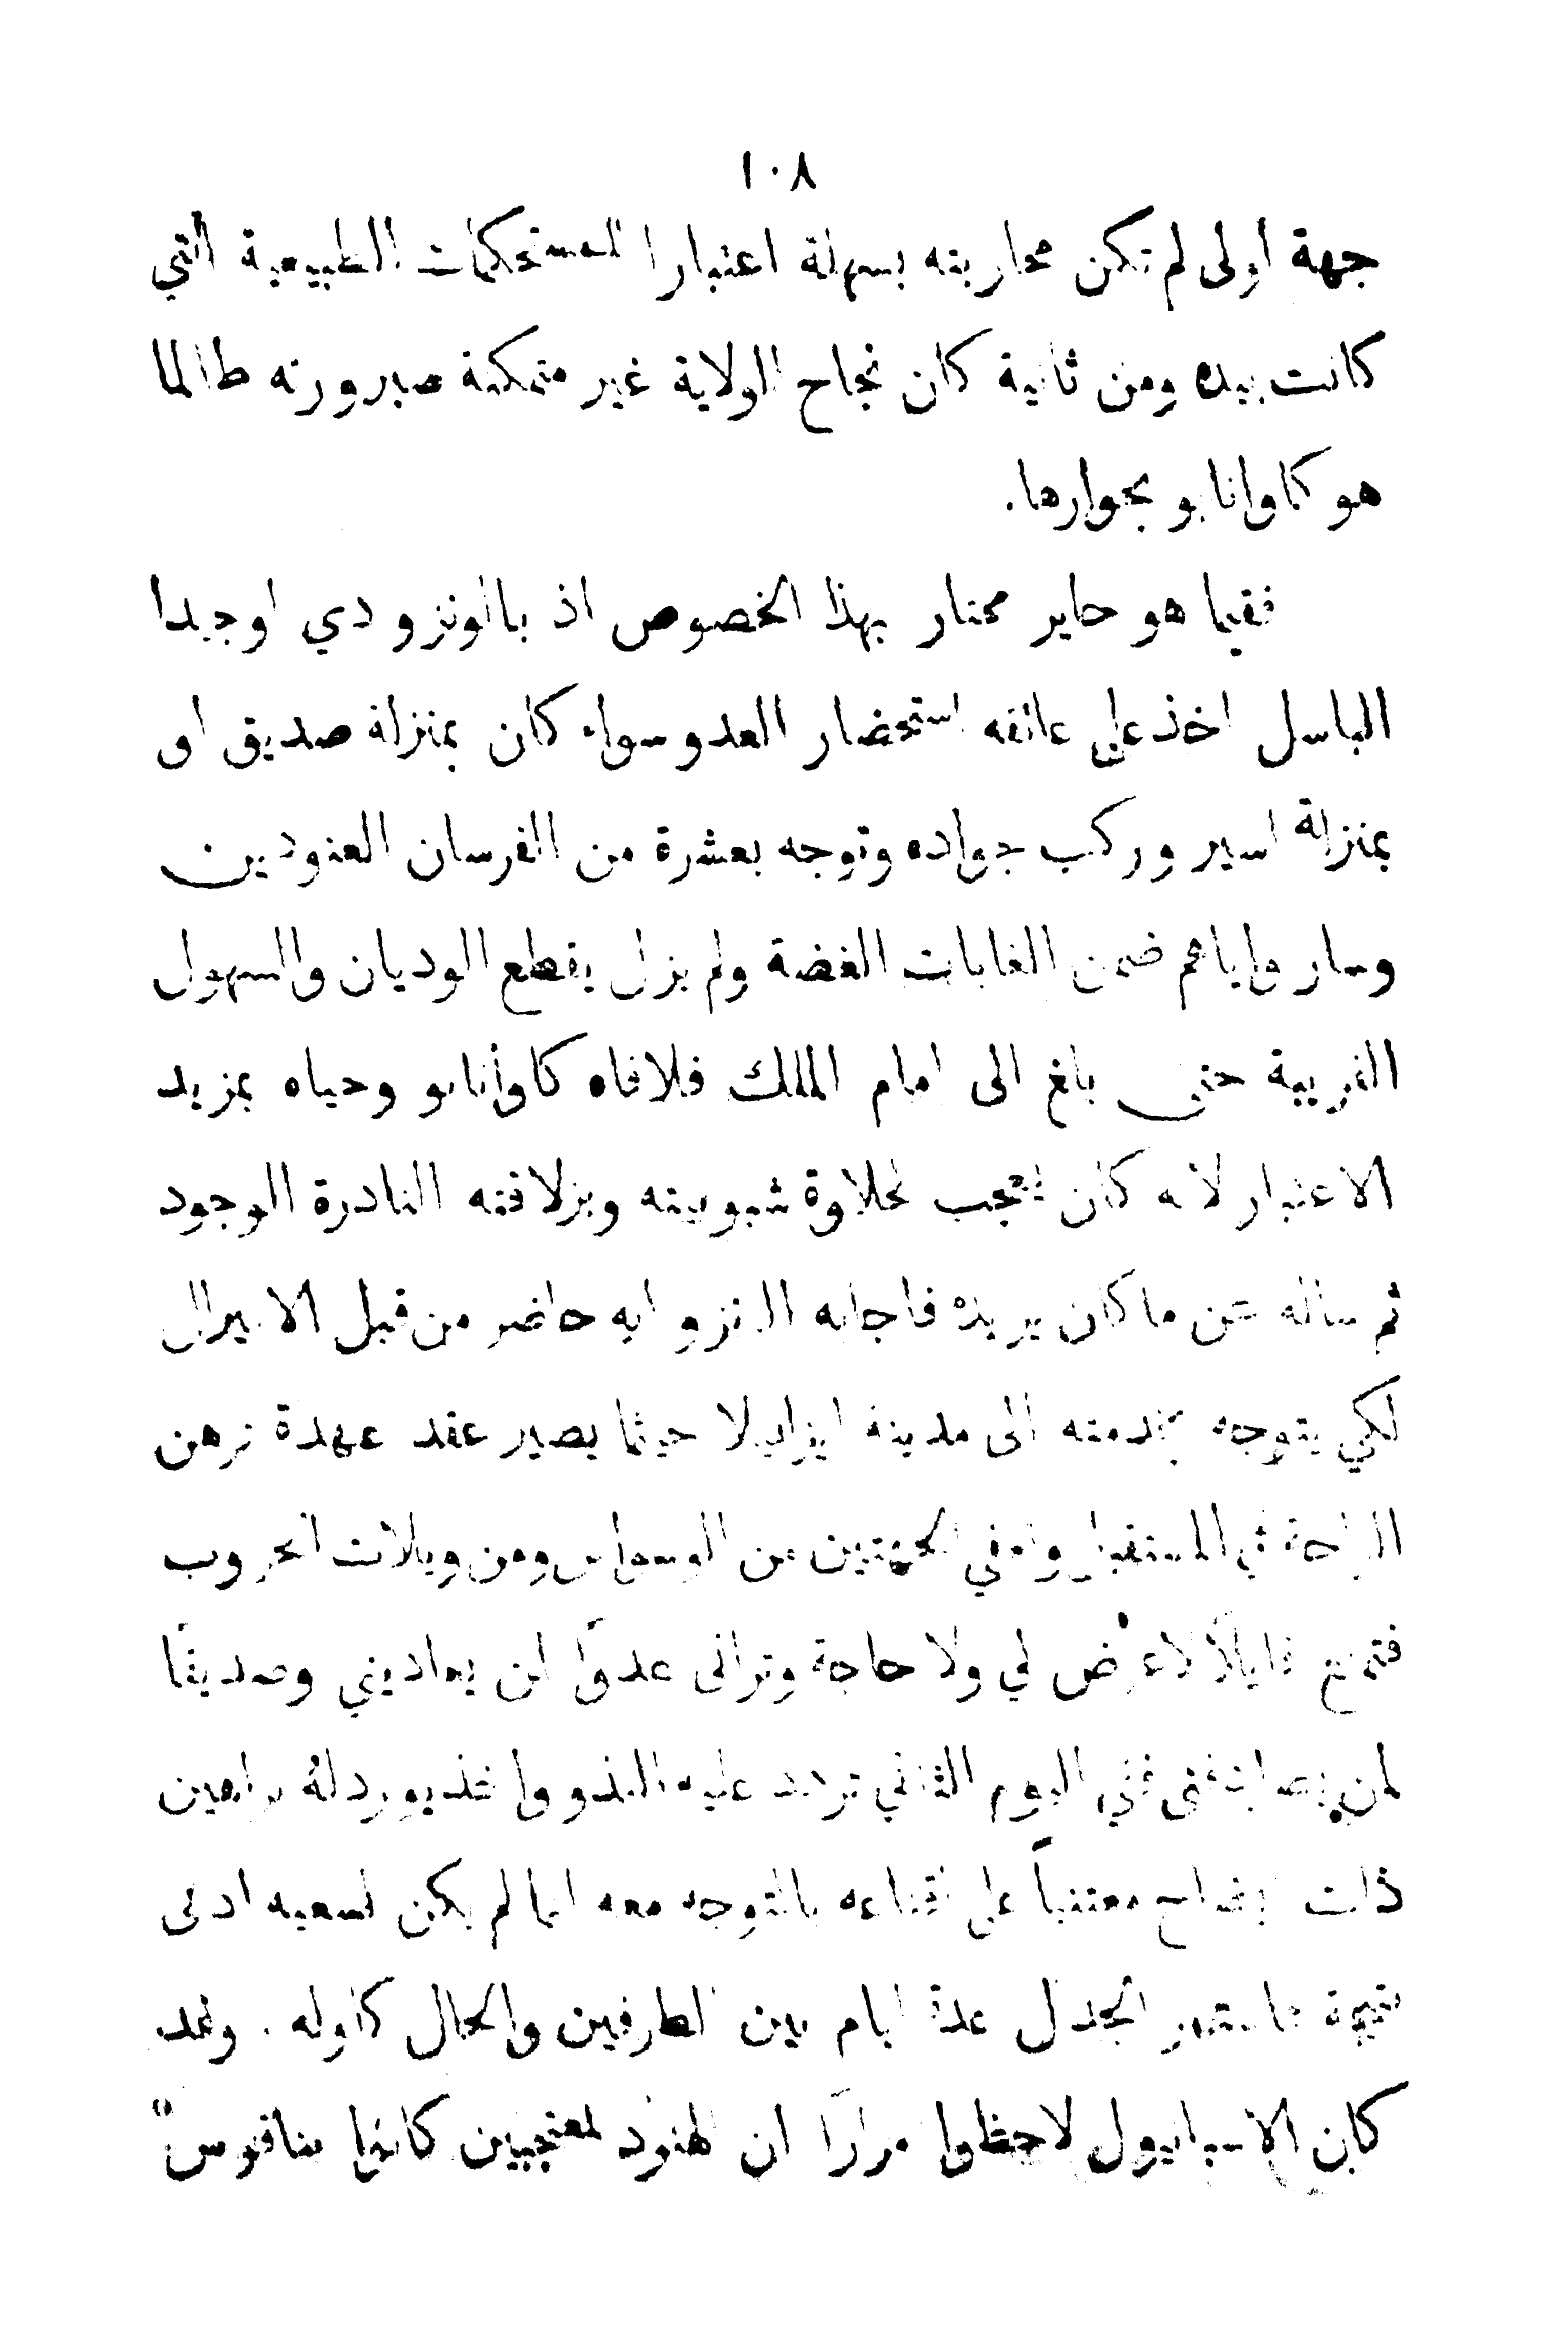 ١٠٨
جهة اولى لم تكن محاربته بسهلة اعتبارا للمستحكمات الطبيعية التي
كانت بيده ومن ثانية كان نجاح الولاية غير متمكنة صيرورته طالما
هو كاوانابو بجوارها.
ففيما هو حاير محتار بهذا الخصوص اذ بالونزو دي اوجيدا
الباسل اخذ على عاتقه استحضار العدو سواء كان بمنزلة صديق او
بمنزلة اسير وركب جواده وتوجه بعشرة من الفرسان العنودين
وسار واياهم ضمن الغابات الغضة ولم يزل يقطع الوديان والسهول
الغريبة حتى بلغ الى امام الملك فلاقاه كاوانابو وحياه بمزيد
الاعتبار لانه كان تعجب لحلاوة شبوبيته وبزلاقته النادرة الوجود
ثم ساله عن ما كان يريده فاجابه النزو انه حاضر من قبل الاميرال
لكي يتوجه بخدمته الى مدينة ايزابيلا حيثما يصير عقد عهدة ترهن
الراحة في المستقبل وتوفي الجهتين من الوسواس ومن ويلات الحروب
فتمنع قايلاً لاعرْض لي ولا حاجة وتراني عدوًا لمن يعاديني وصديقًا
لمن يصادقني ففي اليوم الثاني تردد عليه النذو واخذ يورد لهُ براهين
ذات ايضاح معتنياً على اقناعه بالتوجه معه انما لم يكن لسعيه ادنى
نتيجة فاستمر الجدل عدة ايام بين الطرفين والحال كاوله . ولقد
كان الاسبانيول لاحظوا مرارًا ان الهنود لمعتجبين كانوا بناقوس